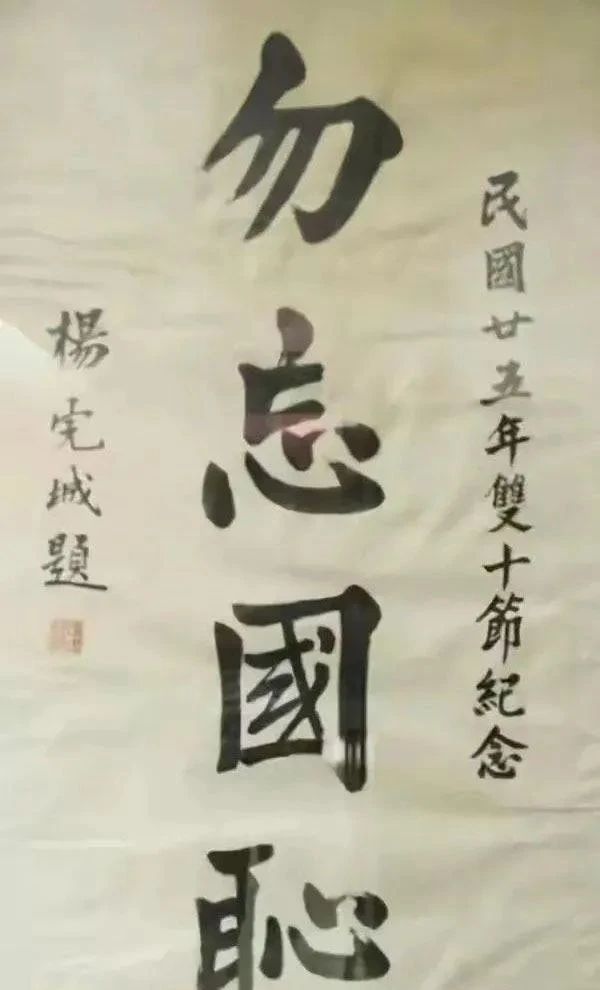 民國廿五年雙十節紀念
勿忘國恥
楊宅城題